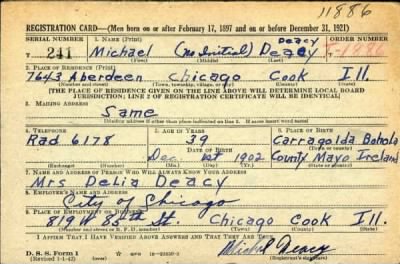 11886
REGISTRATION CARD—(Men born on or after February 17, 1897 and on or before December 31, 1921)
SERIAL NUMBER 1. NAME (Print) DEACY ORDER NUMBER
241 Michael (no Initial) Deacy T-11886
(First) (Middle) (Last)
2. PLACE OF RESIDENCE (Print)
7643 Aberdeen Chicago Cook Ill.
(Number and street) (Town, township, village, or city) (County) (State)
[THE PLACE OF RESIDENCE GIVEN ON THE LINE ABOVE WILL DETERMINE LOCAL BOARD
JURISDICTION; LINE 2 OF REGISTRATION CERTIFICATE WILL BE IDENTICAL]
3. MAILING ADDRESS
Same
(Mailing address if other than place indicated on line 2. If same insert word same)
4. TELEPHONE 5. AGE IN YEARS 6. PLACE OF BIRTH
Rad 6178 39 Carragolda Bohola
DATE OF BIRTH
Dec. 1st 1902 County Mayo Ireland
(Exchange) (Number) (Mo.) (Day) (Yr.) (State or country)
7. NAME AND ADDRESS OF PERSON WHO WILL ALWAYS KNOW YOUR ADDRESS
Mrs. Delia Deacy
8. EMPLOYER'S NAME AND ADDRESS
City of Chicago
9. PLACE OF EMPLOYMENT OR BUSINESS
819 W 88th St. Chicago Cook Ill.
(Number and street or R. F. D. number) (Town) (County) (State)
I AFFIRM THAT I HAVE VERIFIED ABOVE ANSWERS AND THAT THEY ARE TRUE.
D. S. S. Form 1
(Revised 1-1-42) (over)
Michael Deacy
(Registrant's signature)